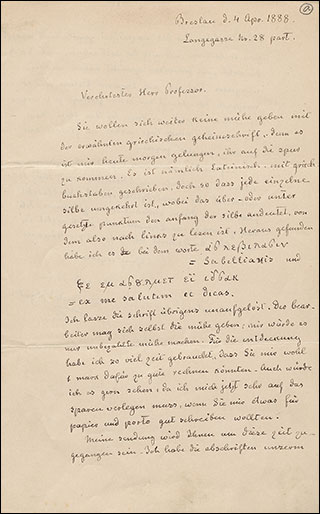 Breslau d. 4 Apr. 1888.
Langegasse Nr. 28 part.
Verehrtester Herr Professor.
Sie wollen sich weiter keine mühe geben mit
der erwähnten griechischen geheimschrift, denn es
ist mir heute morgen gelungen, ihr auf die spur
zu kommen. Es ist nämlich Lateinisch mit griech
buchstaben geschrieben, doch so dass jede einzelne
silbe umgekehrt ist, wobei das über- oder unter
gesetzte punctum den anfang der silbe andeutet, von
dem also nach links zu lesen ist. Heraus gefunden
habe ich es bei dem worte
= Sabellianis und
= ex me salutem ei dicas.
Ich lasse die schrift übrigens unaufgelöst. Der bear-
beiter mag sich selbst die mühe geben; mir würde es
nur unbezahlte mühe machen. Für die entdeckung
habe ich so viel zeit gebraucht, dass Sie mir wohl
1 mark dafür zu gute rechnen könnten. Auch würde
ich es gern sehen, da ich mich jetzt sehr auf das
sparen verlegen muss, wenn Sie mir etwas für
papier und porto gut schreiben wollten.
Meine sendung wird Ihnen um diese zeit zu-
gegangen sein. Ich habe die abschriften